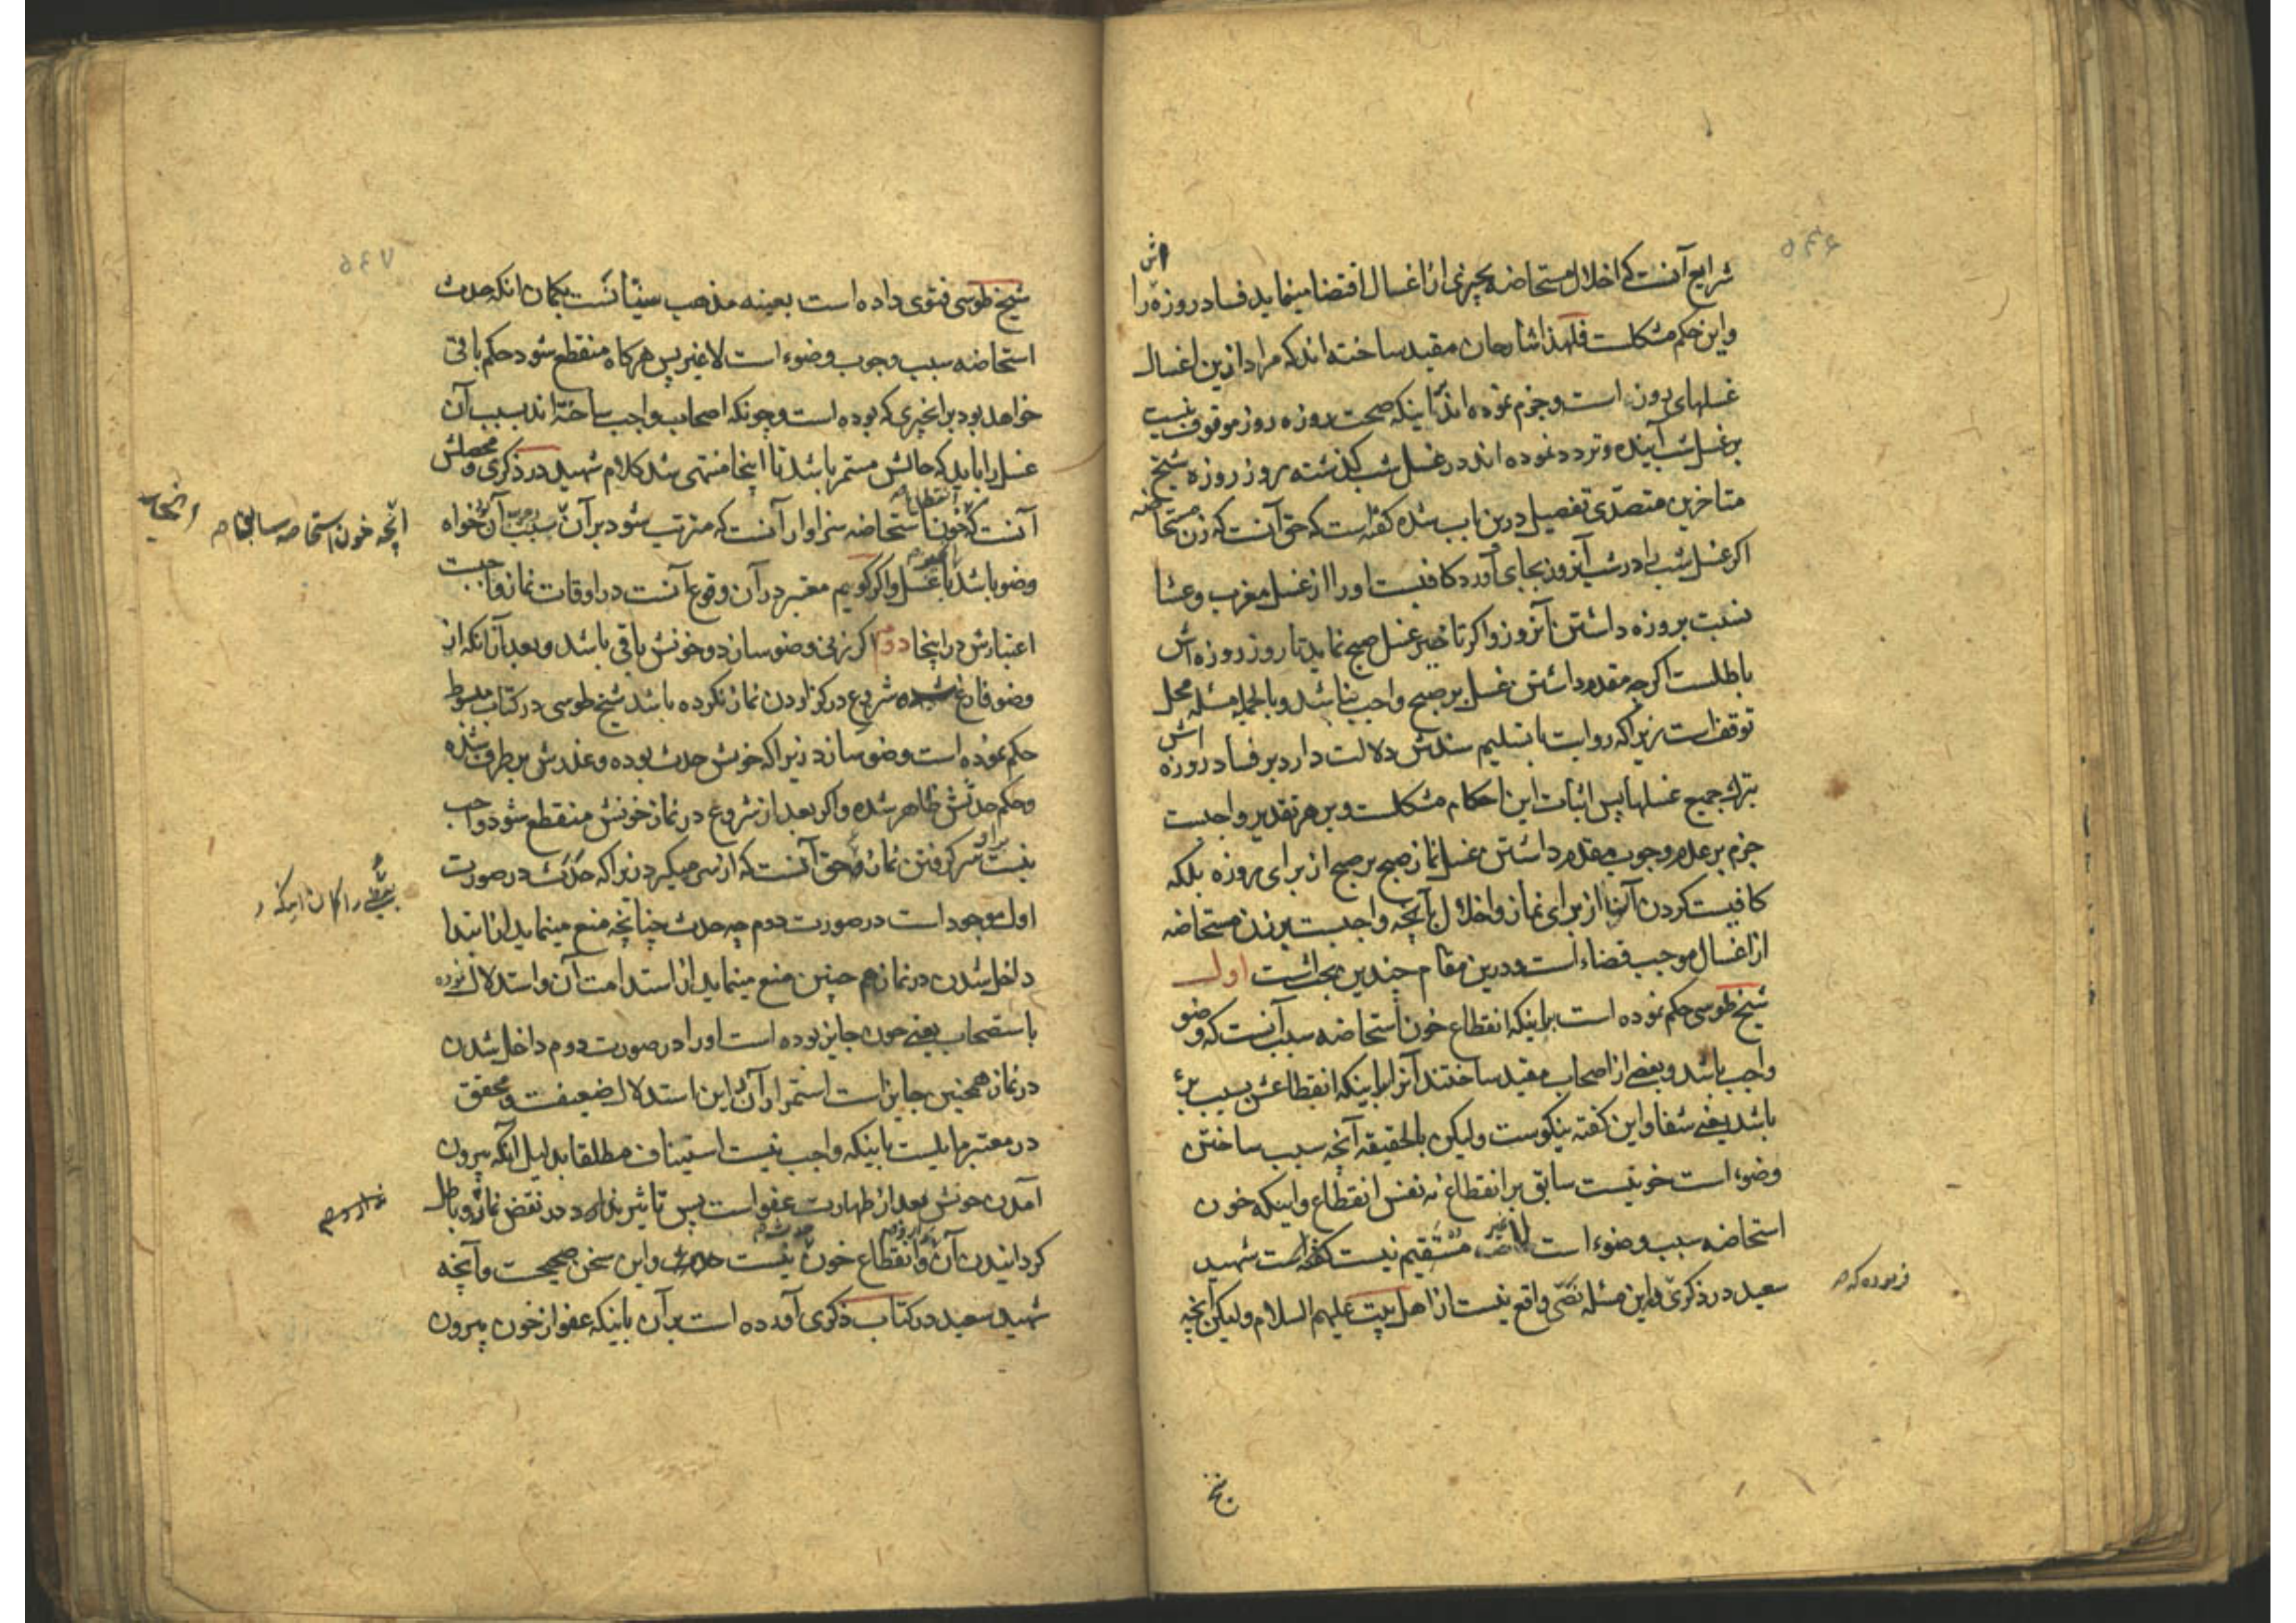 شرایع آنست که اخلال مستحاضه بچیزی از اغسال اقتضا مینماید فساد روزه اش را
و این حکم مشکلست فلهذا شارحان مقید ساخته اند که مراد ازین اغسال
غسلهای روز است و جزم نموده اند باینکه صحت روزه روز موقوف نیست
بر غسل شب آینده و تردد نموده اند در غسل شب گذشته بروز روزه شیخ
متاخرین متصدّی تفصیل درین باب شده گفته است که حق آنست که زن مستحاضه
اگر غسل شب را در شب آنروز بجای آورد کافیست او را از غسل مغرب و عشا
نسبت بروزه داشتن آنروز و اگر تاخیر غسل صبح نماید تا روز روزه اش
باطلست اگرچه مقدم داشتن غسل بر صبح واجب نباشد و بالجمله مسئله محل
توقف است زیرا که روایت با تسلیم سندش دلالت دارد بر فساد روزه اش
بترک جمیع غسلها پس اثبات این احکام مشکلست و بر هر تقدیر واجبست
جزم بر عدم وجوب مقدم داشتن غسل نماز صبح بر صبح از برای روزه بلکه
کافیست کردن آنها از برای نماز و اخلال بآنچه واجبست بر زن مستحاضه
از اغسال موجب قضاء است و درین مقام چندین بحث است اول
شیخ طوسی حکم نموده است براینکه انقطاع خون استحاضه سبب آنست که وضو
واجب باشد و بعضی از اصحاب مقید ساختند آنرا باینکه انقطاعش بسبب برء
باشد یعنی شفا و این گفته نیکوست ولیکن بالحقیقه آنچه سبب ساختن
وضوء است خونیست سابق بر انقطاع نه نفس انقطاع و اینکه خون
استحاضه سبب وضوء است لا غیر مستقیم نیست گفته است شهید
سعید در ذکری در این مسئله نصّی واقع نیست از اهل بیت علیهم السلام ولیکن آنچه
فرموده که
شیخ طوسی فتوی داده است بعینه مذهب سنیانست بگمان انکه حدث
استحاضه سبب وجوب وضوء است لا غیر پس هرگاه منقطع شود حکم باقی
خواهد بود بر انچیزی که بوده است و چونکه اصحاب واجب ساخته اند بسبب آن
غسل را باید که حالش مستمر باشد تا اینجا منتهی شد کلام شهید در ذکری و محصلش
آنست که خون استحاضه سزاوار آنست که مترتب شود بر آن سبب آن خواه
انچه خون استحاضه سابقا
وضو باشد یا غسل و اگر گوییم معتبر در آن وقوع آنست در اوقات نماز واجبست
اعتبارش در اینجا دوم اگر زنی وضو سازد و خونش باقی باشد و بعد از انکه از
وضو فارغ شده شروع در گزاردن نماز نکرده باشد شیخ طوسی در کتاب مبسوط
حکم نموده است وضو سازد زیرا که خونش حدث بوده و عذرش برطرف شده
و حکم حدثش ظاهر شده و اگر بعد از شروع در نماز خونش منقطع شود واجب
نیست سر گرفتن نماز و حق آنست که از سر میگیرد زیرا که حدث در صورت
اول موجود است در صورت دوم چه حدث چنانچه منع مینماید از ابتدا
داخل شدن در نماز هم چنین منع مینماید از استدامت آن و استدلال نموده
باستصحاب یعنی چون جایز بوده است او را در صورت دوم داخل شدن
در نماز همچنین جایز است استمرار آن این استدلال ضعیفست و محقق
در معتبر مایلست باینکه واجب نیست استیناف مطلقا بدلیل آنکه بیرون
آمدن خونش بعد از طهارت عفو است پس تاثیر ندارد در نقض نماز و باطل
گردانیدن آن و انقطاع خون نیست حدث و این سخن صحیحست و آنچه
شهید سعید در کتاب ذکری آورده است بر آن باینکه عفو از خون بیرون